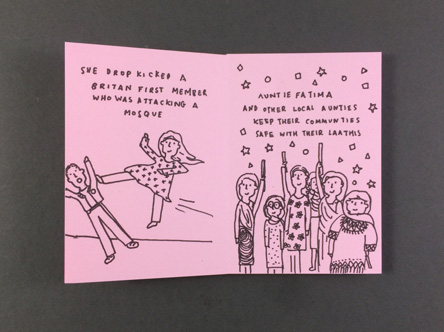 SHE DROP KICKED A
BRITAN FIRST MEMBER
WHO WAS ATTACKING A
MOSQUE
AUNTIE FATIMA
AND OTHER LOCAL AUNTIES
KEEP THEIR COMMUNTIES
SAFE WITH THEIR LAATHIS